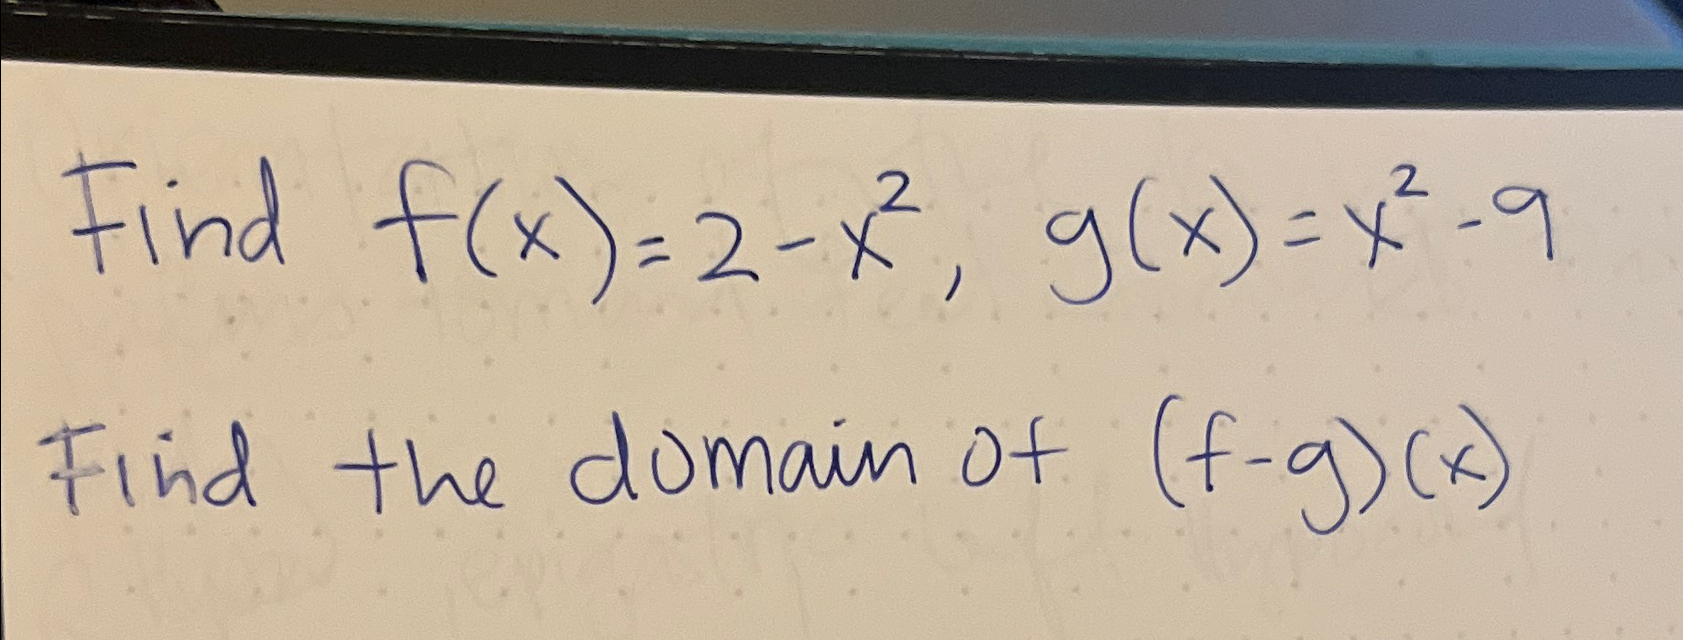 Find f(x)=2-x², g(x)=x²-9
Find the domain of (f-g)(x)